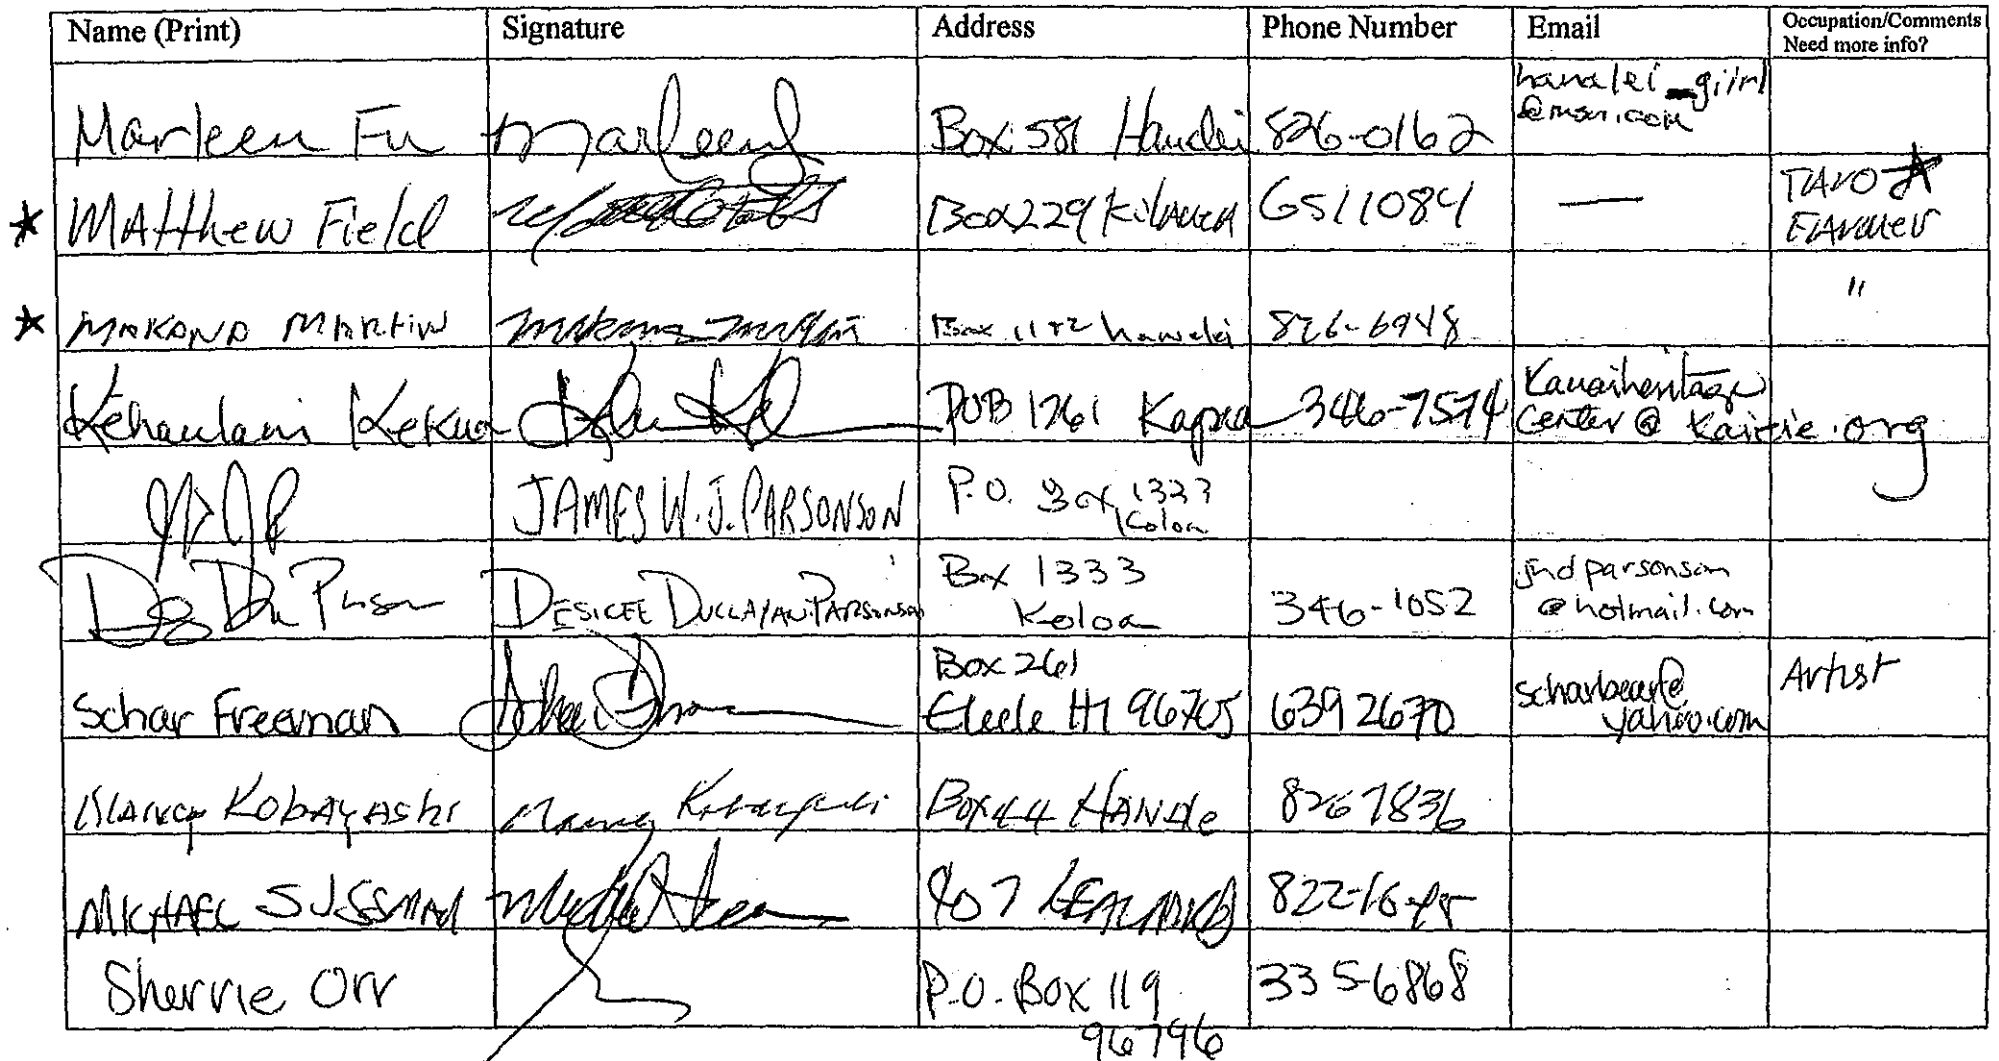 Name (Print) Signature Address Phone Number Email Occupation/Comments Need more info?
Marleen Fu Marleen Box 581 Hanalei 826-0162 hanalei_girl @msn.com
★ Matthew Field Box 229 Kilauea 6511084 — TARO ★ FARMER
★ MAKANA MARTIN Makana Martin Box 1182 hanalei 826-6948 "
Kehaulani Kekua POB 1261 Kapaa 346-7574 Kauaiheritage center@kaieie.org
JAMES W.J. PARSONSON P.O. Box 1333 Koloa
DESIREE DUCLAYAN PARSONSON Box 1333 Koloa 346-1052 jnd parsonson @hotmail.com
Schar Freeman Box 261 Eleele HI 96705 639 2670 scharbear@ yahoo.com Artist
Nancy KOBAYASHI Nancy Kobayashi Box 44 8267836
MICHAEL SUSSMAN 907 822-16
Sherrie Orr P.O. Box 119 96796 335-6868